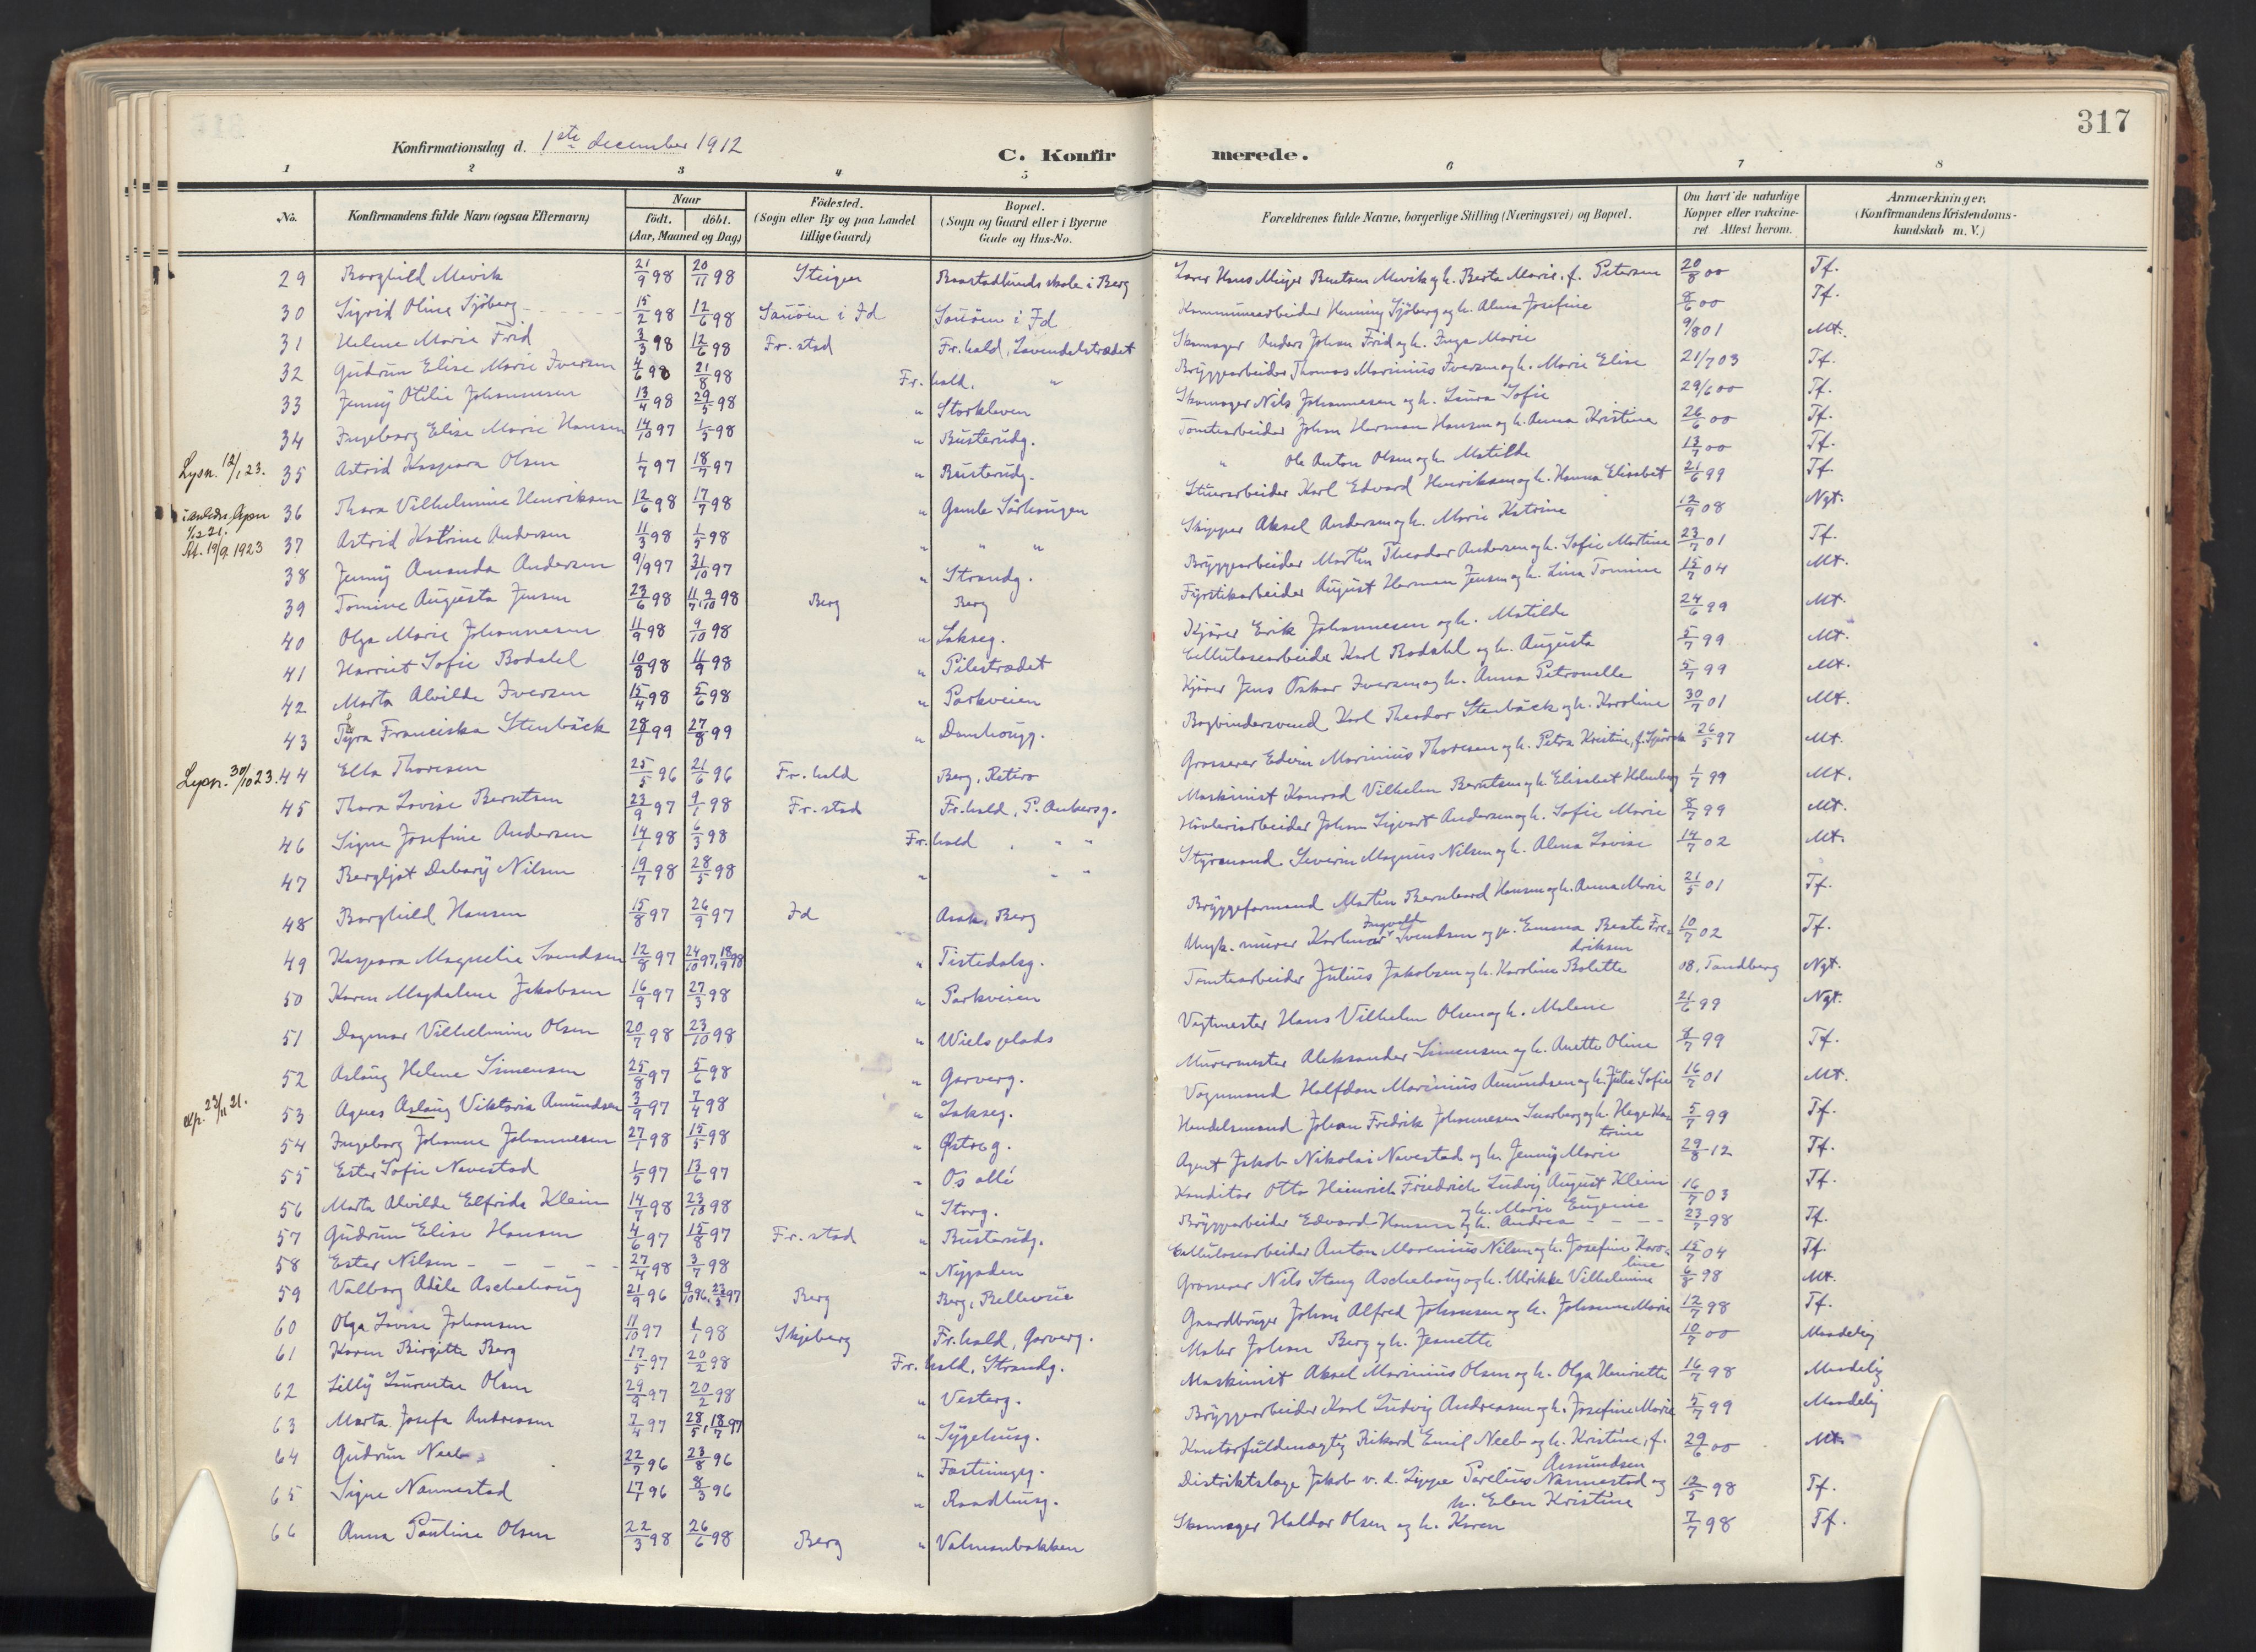 317
Konfirmationsdag d. 1ste december 1912
C. Konfirmerede.
1 2 3 4 5 6 7 8
No. Konfirmandens fulde Navn (ogsaa Efternavn) Naar født. døbt. (Aar, Maaned og Dag) Fødested. (Sogn eller By og paa Landet tillige Gaard) Bopæl. (Sogn og Gaard eller i Byerne Gade og Hus-No. Forældrenes fulde Navne, borgerlige Stilling (Næringsvei) og Bopæl. Om havt de naturlige Kopper eller vakcineret Attest herom. Anmærkninger. (Konfirmandens Kristendomskundskab m. V.)
29 Borghild Mevik 21/9 98 20/11 98 Steigen i Berg Lærer Hans Meyer Bentsen Mevik og h. Berta Marie, f. Petersen 20/8 00 Tf.
30 Sigrid Oline Sjöberg 15/2 98 12/6 98 Sauöen i Id Sauöen i Id Kommunearbeider Henning Sjöberg og h. Alma Josefine 00 Tf.
31 Helene Marie Frid 3/3 98 12/6 98 Fr.stad Fr.hald, Lavendelstrædet Skomager Anders Johan Frid og h. Inga Marie 9/8 01 Mt.
32 Gudrun Elise Marie Iversen 4/6 98 21/8 98 Fr.hald. " Bryggearbeider Thomas Marinius Iversen og h. Marie Elise 21/7 03 Tf.
33 Jenny Otilie Johannesen 13/4 98 29/5 98 " Storkleven Skomager Nils Johannesen og h. Laura Sofie 29/6 00 Tf.
34 Ingeborg Elise Marie Hansen 14/10 97 1/5 98 " Busterudg. Tomtearbeider Johan Herman Hansen og h. Anna Kristina 26/6 00 Tf.
Lysn. 12/1 23. 35 Astrid Kaspara Olsen 1/7 97 18/7 97 " Busterudg. " Ole Anton Olsen og h. Matilde 13/7 00 Tf.
36 Thora Vilhelmine Henriksen 12/6 98 17/7 98 " Gamle Sörhaugen Stuerarbeider Karl Edvard Henriksen og h. Hanna Elisabet 21/6 99 Tf.
19/9 1923 37 Astrid Katrine Andersen 11/3 98 1/5 98 " " " Skipper Aksel Andersen og h. Marie Katrine 12/9 08 Ngt.
38 Jenny Amanda Andersen 9/9 97 31/10 97 " Strandg. Bryggearbeider Martin Theodor Andersen og h. Sofie Martine 23/7 01 Tf.
39 Tomine Augusta Jensen 23/6 98 11/7, 9/10 98 Berg Berg Fyrstikarbeider August Herman Jensen og h. Lina Tomine 15/7 04 Mt.
40 Olga Marie Johannesen 11/9 98 9/10 98 " Lakseg. Kjører Erik Johannesen og h. Matilde 24/6 99 Mt.
41 Harriet Sofie Bodahl 10/8 98 11/9 98 " Pilestrædet Cellulosearbeider Karl Bodahl og h. Augusta 5/7 99 Mt.
42 Marta Alvilde Iversen 15/4 98 5/6 98 " Parkveien Kjører Jens Oskar Iversen og h. Anna Petronelle 5/7 99 Mt.
43 Franciska Stenbäck 28/1 99 27/8 99 " Damhaugg. Bogbindersvend Karl Theodor Stenbäck og h. Karoline 30/7 01 Mt.
Lysn. 30/10 23. 44 Ella Thoresen 25/5 96 21/6 96 Fr.hald Berg, Retiro Grosserer Edvin Marinius Thoresen og h. Petra Kristine, f. 26/5 97 Mt.
45 Thora Lovise Berntsen 23/9 97 9/1 98 Fr.stad Fr.hald, P. Ankersg. Maskinist Konrad Vilhelm Berntsen og h. Elisabet Holmberg 1/7 99 Mt.
46 Signe Josefine Andersen 14/1 98 6/3 98 Fr.hald " " Høvleriarbeider Johan Sigvart Andersen og h. Sofie Marie 8/7 99 Mt.
47 Bergljot Nilsen 19/7 98 28/5 98 " " " Styrmand Severin Magnus Nilsen og h. Alma Lovise 14/7 02 Mt.
48 Borghild Hansen 15/8 97 26/9 97 Id Asak, Berg Bryggeformand Martin Bernhard Hansen og h. Anna Marie 21/5 01 Tf.
49 Kaspara Magnelie Svendsen 12/8 97 24/10 97, 18/9 98 " Tistedalsg. Ungk. murer Karlmar Ingvald Svendsen og p. Emma Beate Fredriksen 10/7 02 Tf.
50 Karen Magdalene Jakobsen 16/9 97 27/3 98 " Parkveien Tomtearbeider Julius Jakobsen og h. Karoline Bolette 08, Tandberg Ngt.
51 Dagmar Vilhelmine Olsen 20/7 98 23/10 98 " Wiels plads Vegtmester Hans Vilhelm Olsen og h. Malene 21/6 99 Ngt.
52 Aslaug Helene Simensen 25/8 97 5/6 98 " Garverg. Murermester Aleksander Simensen og h. Anette Oline 8/7 99 Tf.
exp. 23/11 21. 53 Agnes Aslaug Viktoria Amundsen 3/9 97 7/4 98 " Lakseg. Vognmand Halfdan Marinius Amundsen og h. Julie Sofie 16/7 01 Mt.
54 Ingeborg Johanne Johannesen 27/1 98 15/5 98 " Østreg. Handelsmand Johan Fredrik Johannesen og h. Hege Katrine 5/7 99 Tf.
55 Ester Sofie Navestad 1/5 97 13/6 97 " Os allé Agent Jakob Nikolai Navestad og h. Jenny Marie 29/8 12 Tf.
56 Marta Alvilde Elfrida Klein 14/7 98 23/10 98 " Storg. Konditor Otto Heinrich Friedrich Ludvig August Klein og h. Marie Eugenie 16/7 03 Tf.
57 Gudrun Elise Hansen 4/6 97 15/8 97 Fr.stad " Busterudg. Bryggearbeider Edvard Hansen og h. Andrea 23/7 98 Tf.
58 Ester Nilsen 27/4 98 3/7 98 " Nygaden Cellulosearbeider Anton Marenius Nilsen og h. Josefine Karoline 15/7 04 Tf.
59 Valborg Adele Aschehoug 21/9 96 9/10 96, 23/5 97 Berg Berg, Bellevue Grosserer Nils Stang Aschehoug og h. Ulrikke Vilhelmine 6/8 98 Mt.
60 Olga Lovise Johansen 11/10 97 1/1 98 Skjeberg Fr.hald, Garverg. Gaardbruger Johan Alfred Johansen og h. Johanne Marie 12/7 98 Tf.
61 Karen Birgitte Berg 17/5 97 20/2 98 Fr.hald, Strandg. Maler Johan Berg og h. Jeanette 10/7 00 Maadelig
62 Lilly Laurentse Olsen 29/9 97 20/2 98 " Vesterg. Maskinist Aksel Marinius Olsen og h. Olga Henriette 16/7 98 Maadelig
63 Marta Josefa Andreasen 7/4 97 28/5, 18/7 97 " Sygehusg. Bryggearbeider Karl Ludvig Andreasen og h. Josefine Marie 5/7 99 Maadelig
64 Gudrun Neeb 22/7 96 23/8 96 " Fæstningsg. Kontorfuldmægtig Rikard Emil Neeb og h. Kristine, f. Amundsen 29/6 00 Mt.
65 Signe Nannestad 17/1 96 8/3 96 " Raadhusg. Distriktslæge Jakob v. d. Lippe Parelius Nannestad og h. Elen Kristine 12/5 98 Tf.
66 Anna Pauline Olsen 22/3 98 26/6 98 Berg " Valmanbakken Skomager Haldor Olsen og h. Karen 7/7 98 Tf.